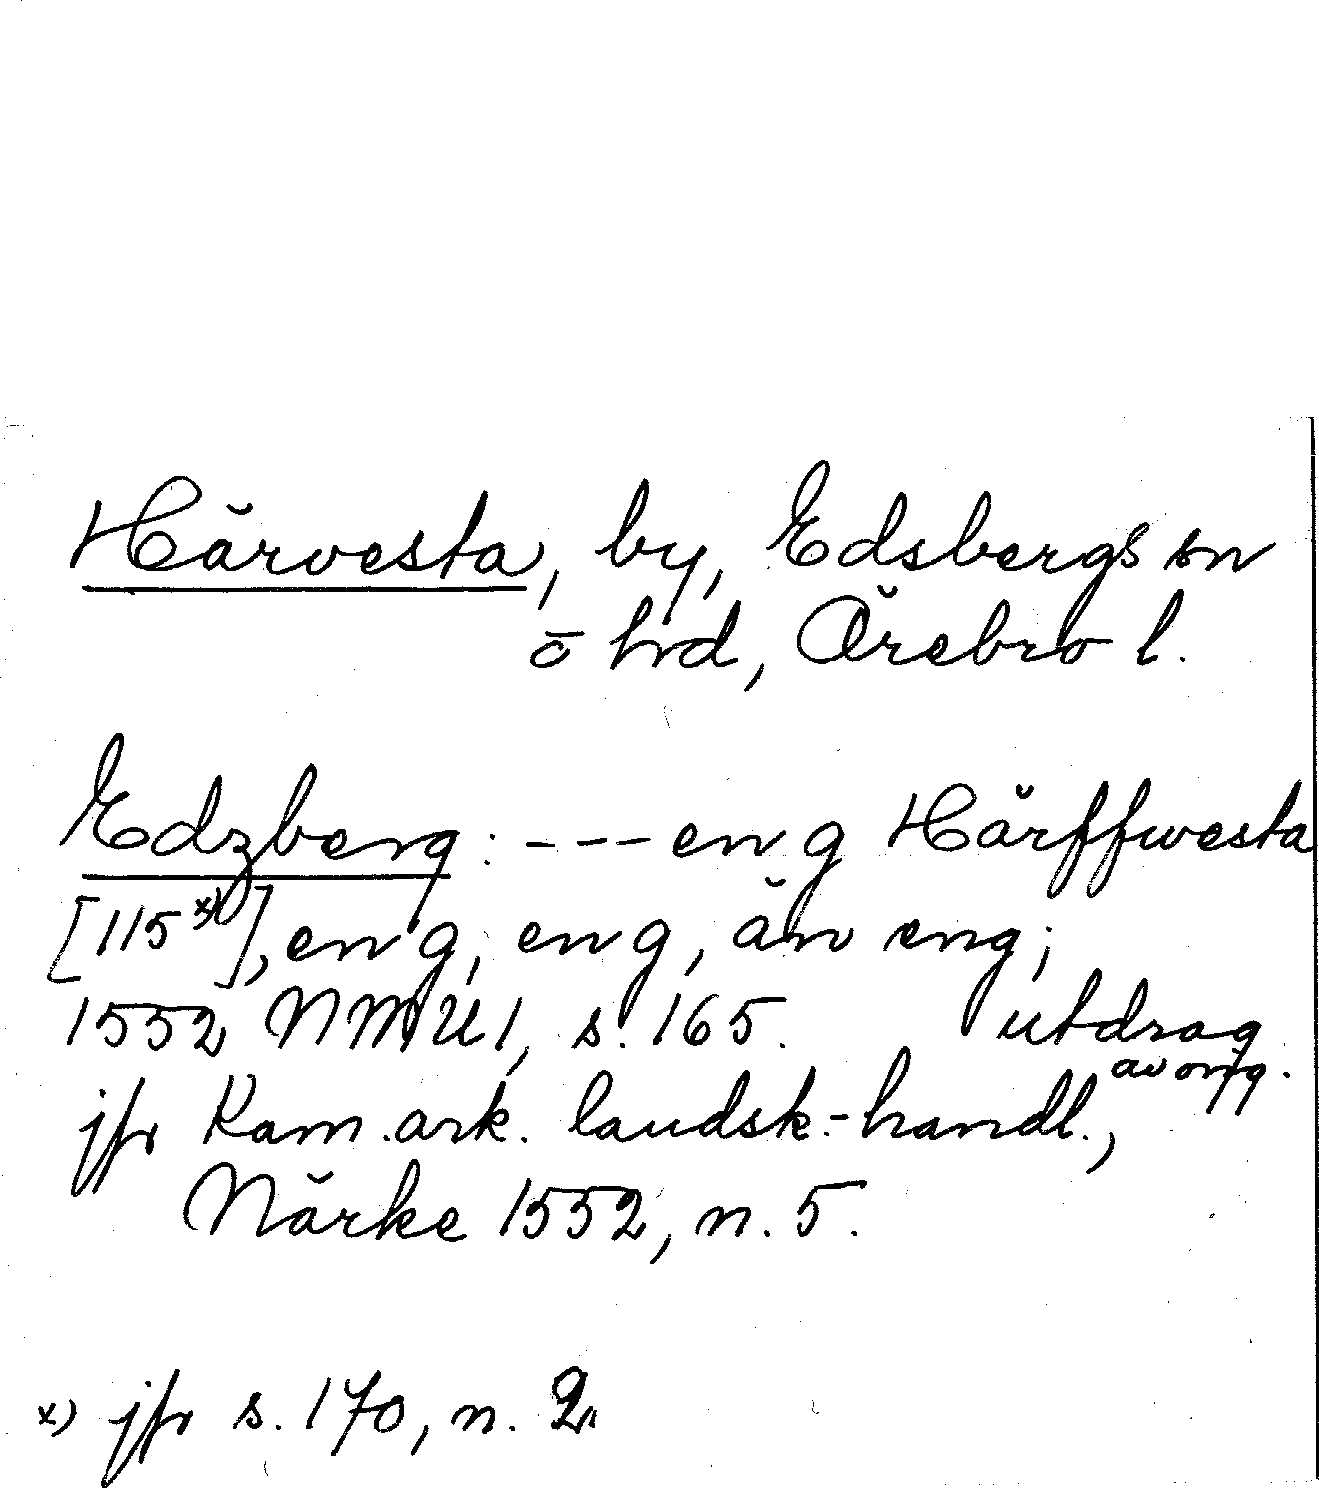 Härvesta, by, Edsbergs sn
o hd, Örebro l.
Edzberg: --- en g Härffwesta
[115 x)], en g, en g, än eng;
1552 NMU 1, s. 165. utdrag
av orig.
jfr Kam.ark. landsk.-handl.,
Närke 1552, n. 5.
x) jfr s. 170, n. 2